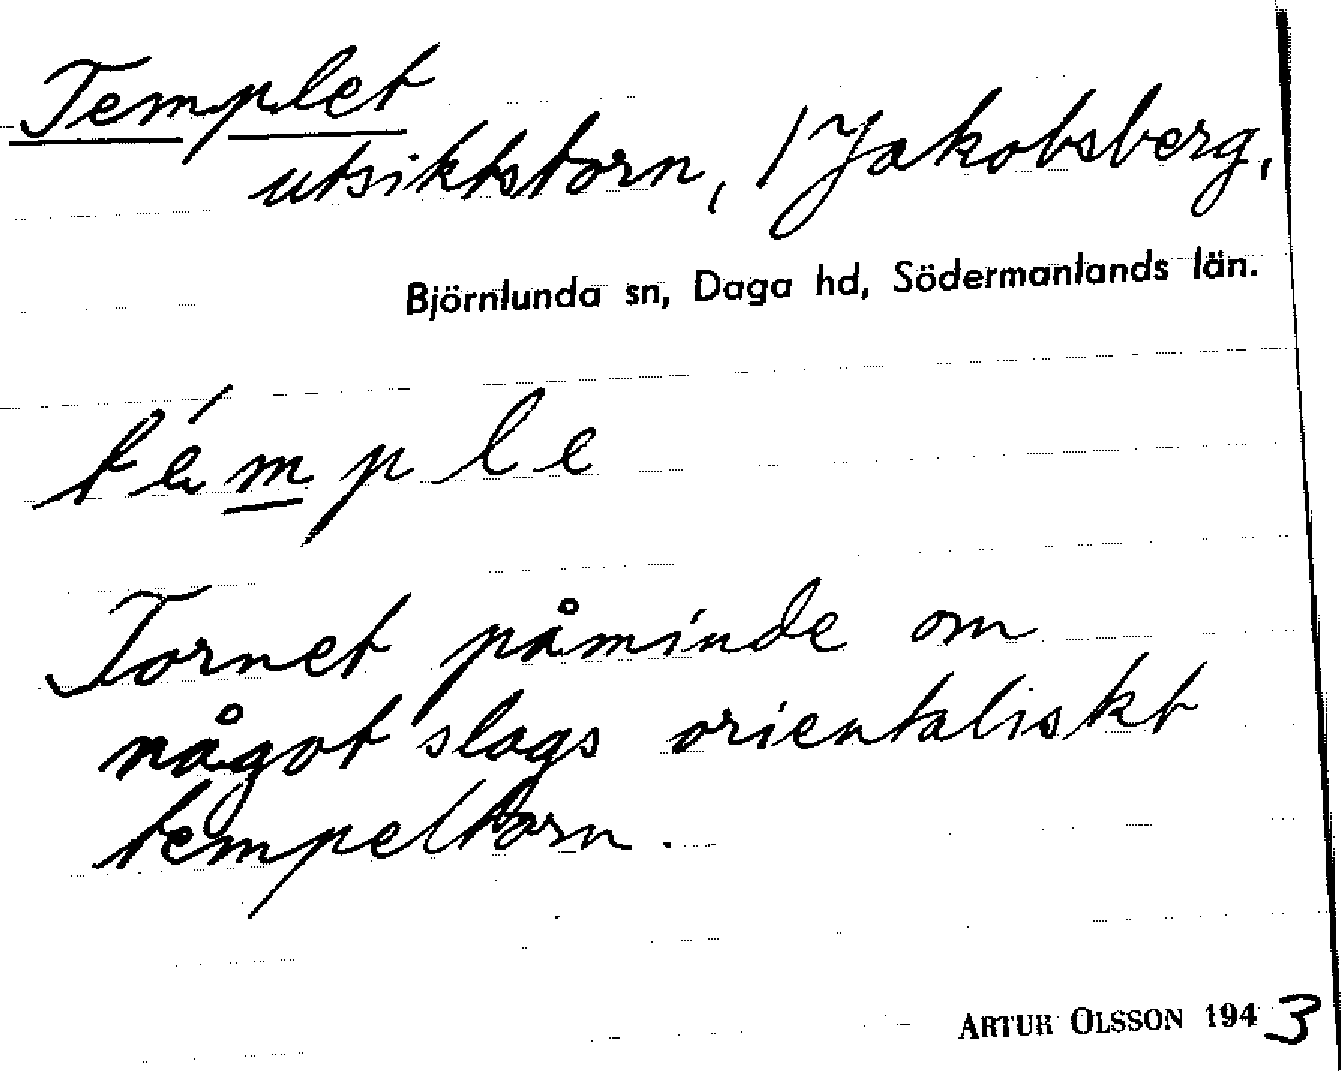 Templet
utsiktstorn, 1 Jakobsberg,
Björnlunda sn, Daga hd, Södermanlands län.
témple
Tornet påminde om
något slags orientaliskt
tempeltorn.
ARTUR OLSSON 1943